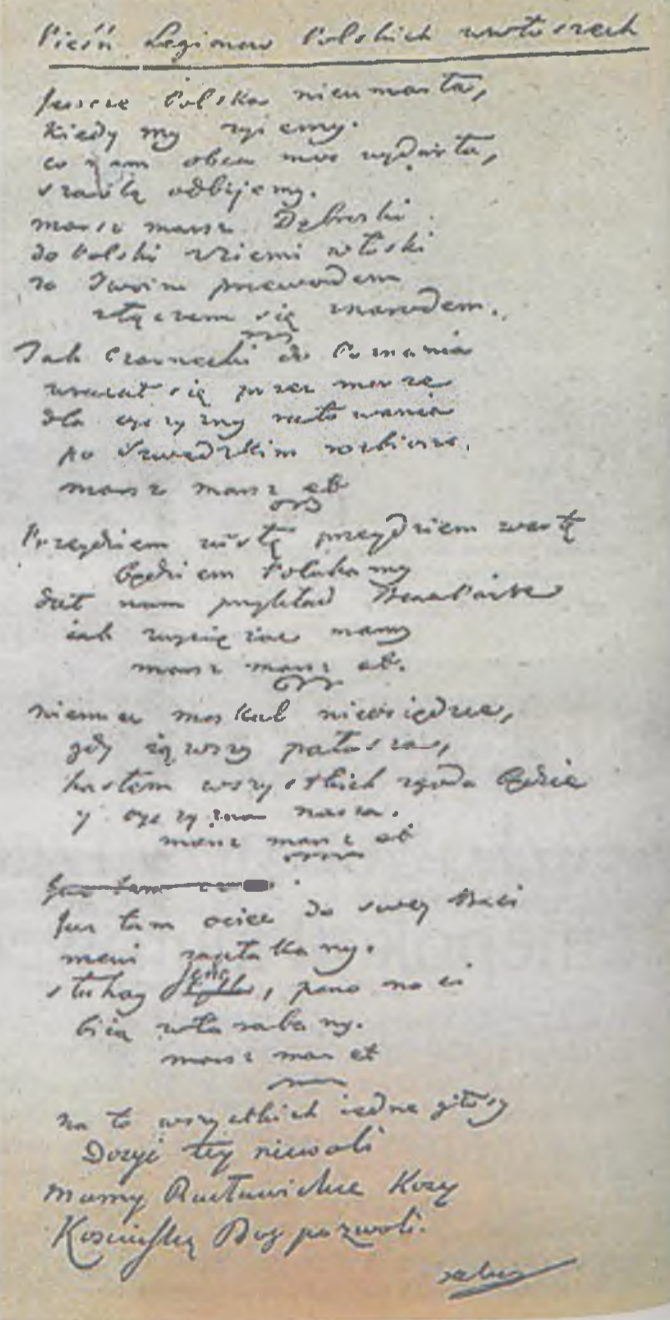 Pieśń Legionow Polskich wewłoszech
Jescze Polska nieumarła,
kiedy my zyiemy.
co nam obca moc wydarła,
szablą odbijemy.
marsz marsz Dąbroski
do Polski z ziemi włoski
za Twoim przewodem
złączem się znarodem.
Jak Czarnecki do Poznania
wracał się przez morze
dla oyczyzny ratowania
po Szwedzkim rozbiorze.
marsz marsz et
Przeydziem wisłę przeydziem wartę
będziem Polakamy
dał nam przykład Bonaparte
iak zwyciężac mamy
marsz marsz et.
niemiec moskal nieosiędzie,
gdy iąwszy pałasza,
hasłem wszystkich zgoda będzie
y oyczyzna nasza.
marsz marsz et
Jusz tam
Jusz tam ociec do swey Basi
mowi zapłakany.
słuchay ieno, pono nasi
biią wtarabany.
marsz mar et
na to wszystkich iedne głosy
Dosyć tey niewoli
Mamy Racławickie Kosy
Kościuszkę Bog pozwoli.